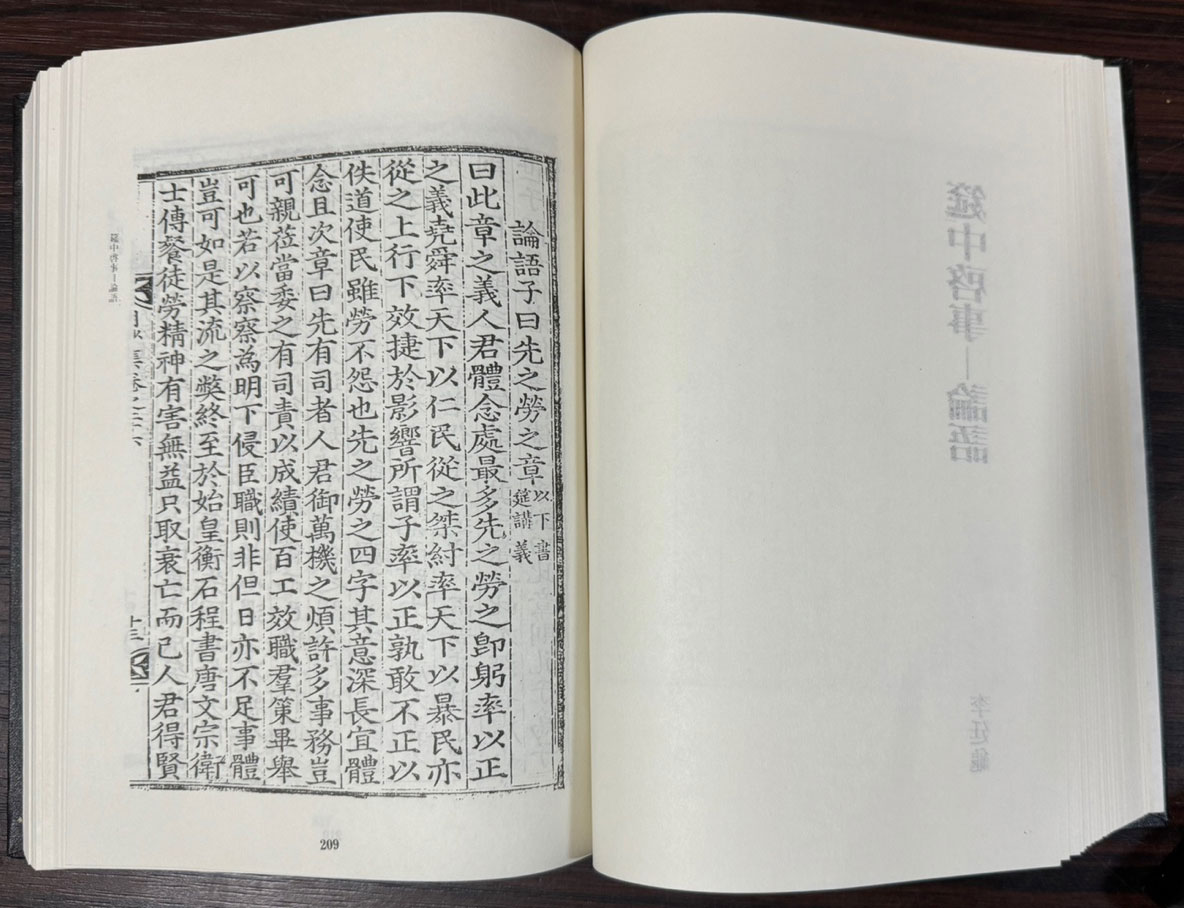 論語子曰先之勞之章 以下書筵講義
曰此章之義人君體念處最多先之勞之卽躬率以正
之義堯舜率天下以仁民從之桀紂率天下以暴民亦
從之上行下效捷於影響所謂子率以正孰敢不正以
佚道使民雖勞不怨也先之勞之四字其意深長宜體
念且次章曰先有司者人君御萬機之煩許多事務豈
可親莅當委之有司責以成績使百工效職羣策畢舉
可也若以察察為明下侵臣職則非但日亦不足事體
豈可如是其流之獘終至於始皇衡石程書唐文宗衛
士傳餐徒勞精神有害無益只取衰亡而已人君得賢
十三
筵中啓事－論語
209
筵中啓事－論語
李廷龜